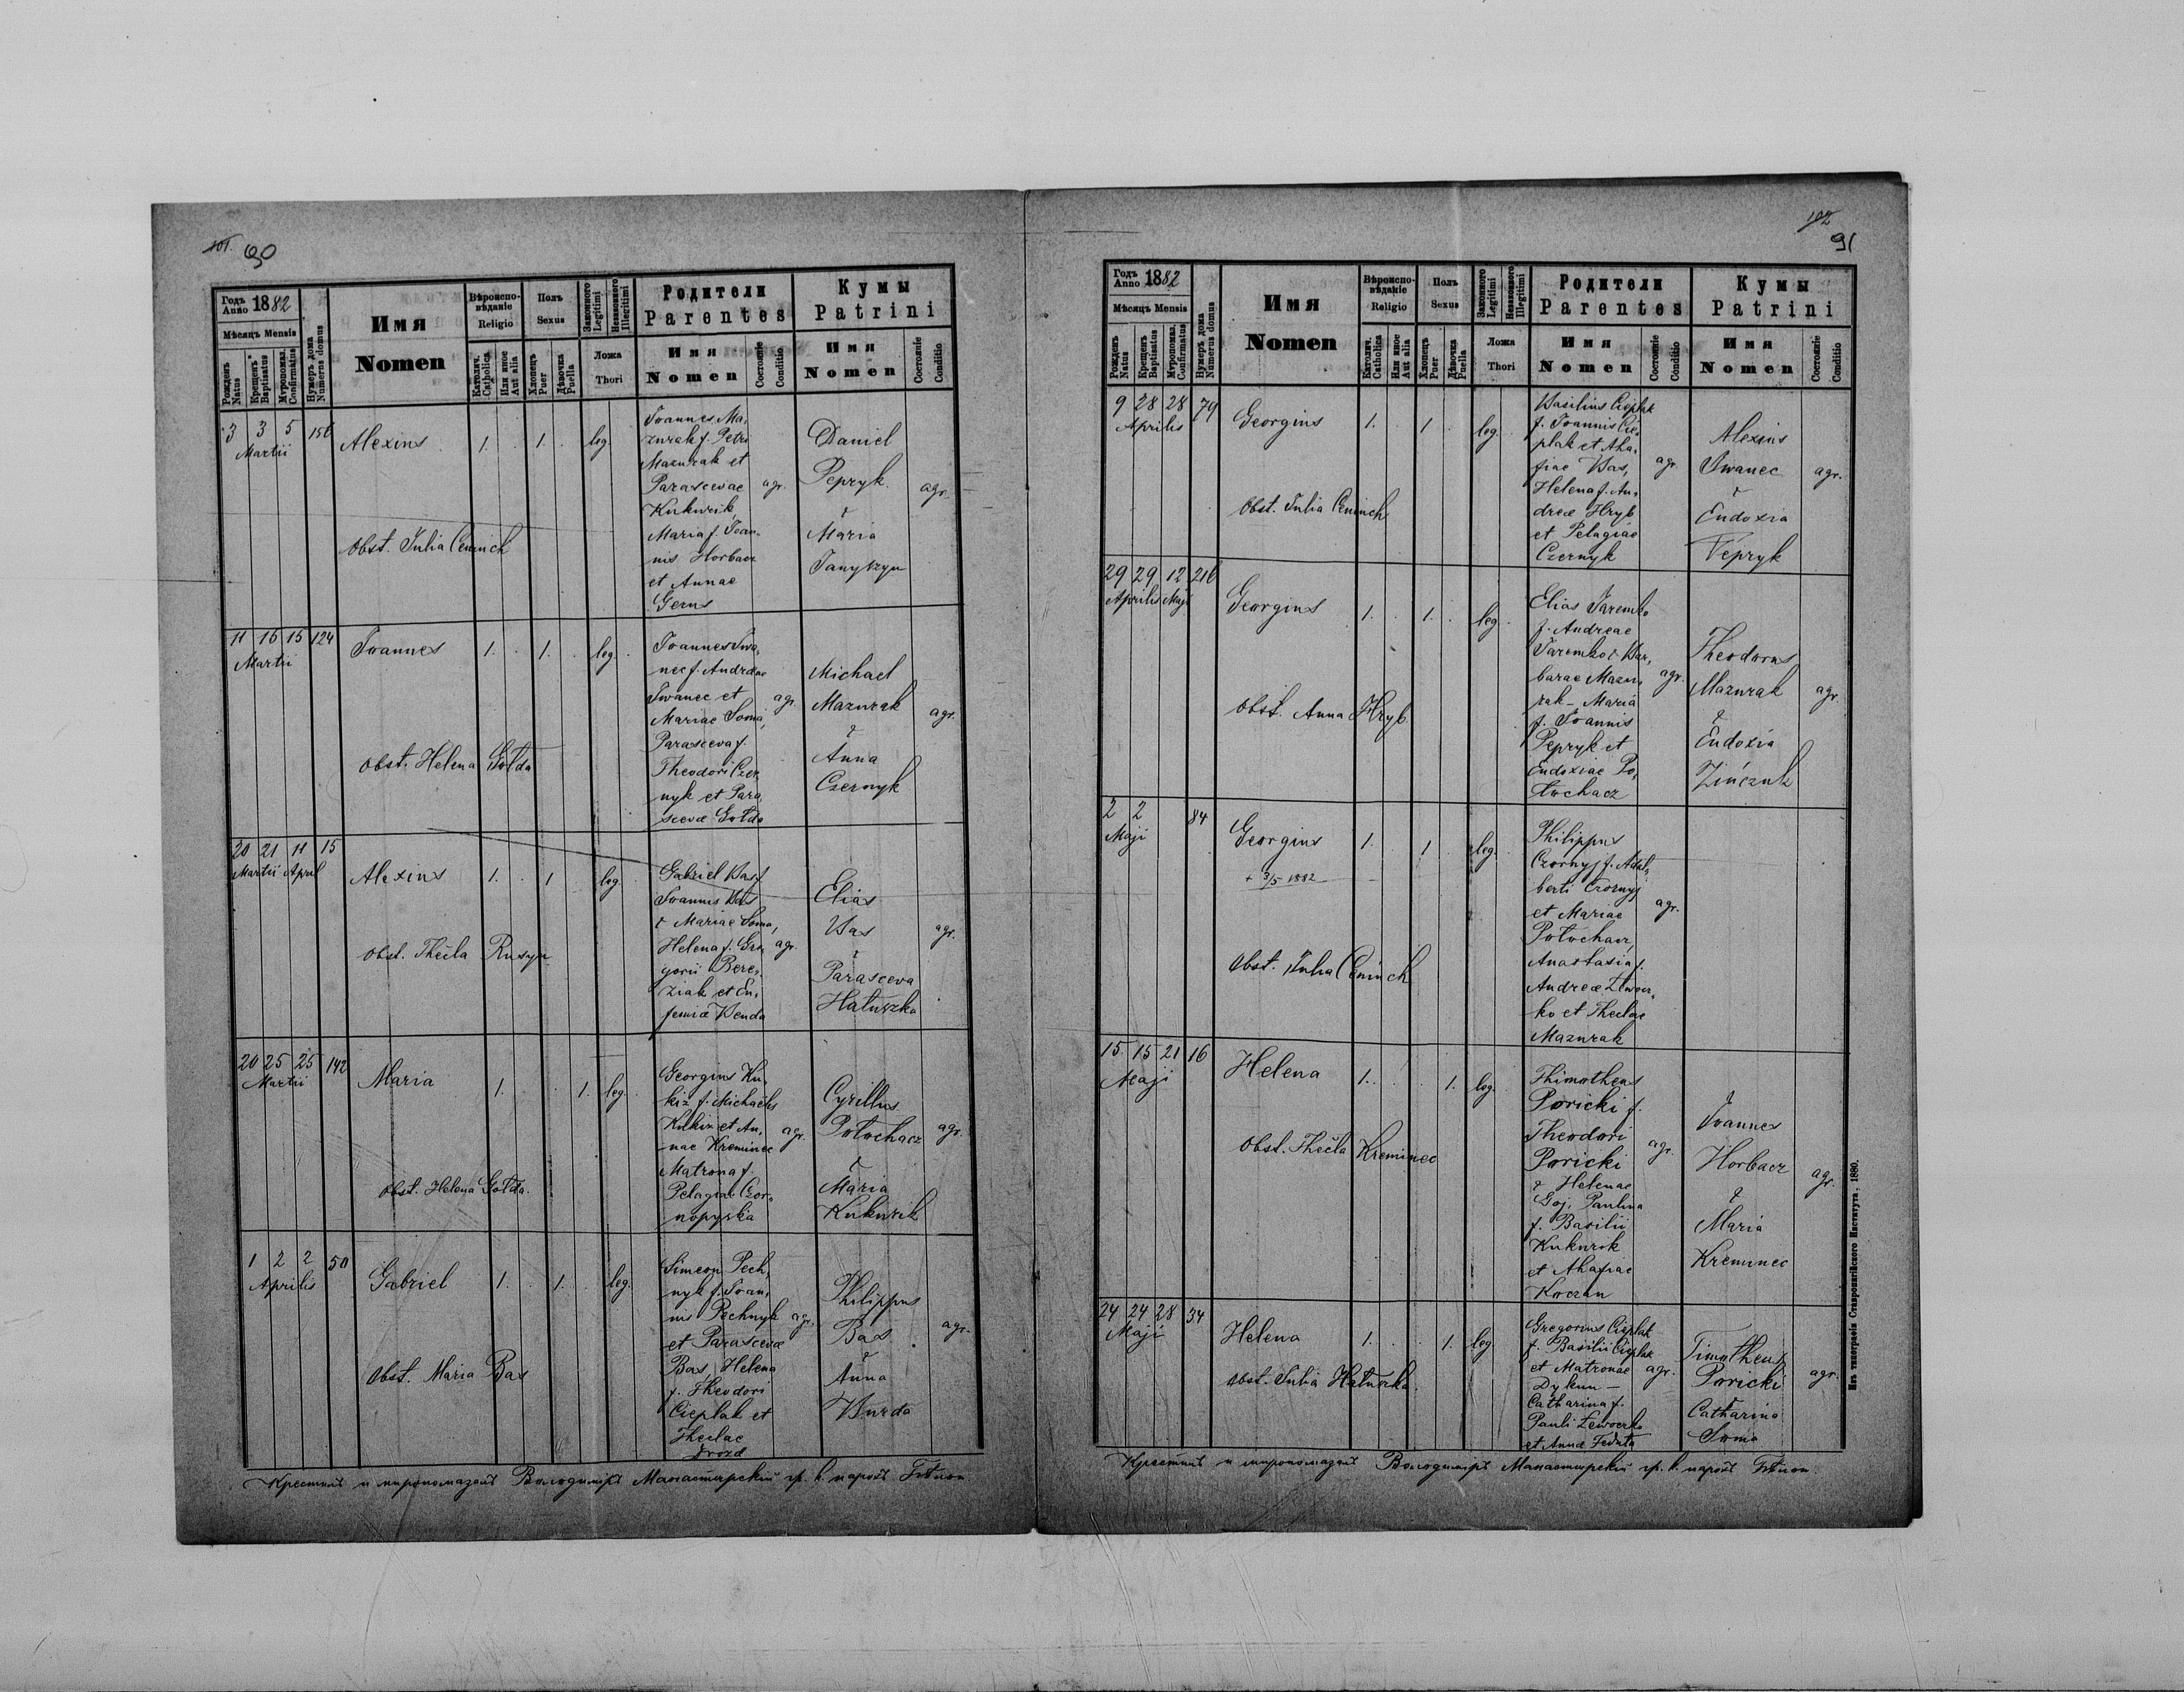 101. 90
Годъ Anno 1882
Мѣсяцъ Mensis
Рожденъ Natus
Крещенъ Baptisatus
Мѵропомаз. Confirmatus
Нумеръ дома Numerus domus
Имя
Nomen
Вѣроиспо-
вѣданіе
Religio
Католич. Catholica
Или иное Aut alia
Полъ
Sexus
Хлопецъ Puer
Дѣвочка Puella
Законного Legitimi
Незаконного Illegitimi
Ложа
Thori
Родители
Parentes
Имя
Nomen
Состояніе Conditio
Кумы
Patrini
Имя
Nomen
Состояніе Conditio
3 3 5 156
Martii
Alexius 1. 1. leg.
Obst. Julia Ceninch
Joannes Ma,
zurak f. Petri
Mazurak et
Parascevae agr.
Kukurik,
Maria f. Joan,
nis Horbacz
et Annae
Gerus
Daniel
Pepryk
agr.
&
Maria
Janyszyn
11 16 15 124
Martii
Joannes 1. 1. leg.
Obst. Helena Gołda
Joannes Iwa,
nec f. Andreae
Iwanec et agr.
Mariae Soma,
Parasceva f.
Theodori Czer,
nyk et Para,
scevae Gołda
Michael
Mazurak
agr.
&
Anna
Czernyk
20 21 11 15
Martii April
Alexius 1. 1 leg.
Obst. Thecla Rusyn
Gabriel Bas f.
Joannis Bas
& Mariae Soma,
Helena f. Gre, agr.
gorii Bere,
ziak et Eu,
femiae Benda
Elias
Bas agr.
&
Parasceva
Hałuszka
20 25 25 142
Martii
Maria 1. 1. leg.
Obst. Helena Gołda.
Georgius Ku,
kiz f. Michaelis
Kukiz et An, agr.
nae Kreminec
Matrona f.
Pelagiae Czor,
nopyska
Cyrillus
Potochacz agr.
&
Maria
Kukurik
1 2 2 50
Aprilis
Gabriel 1. 1. leg.
Obst. Maria Bas
Simeon Pech,
nyk f. Joan,
nis Pechnyk agr.
et Parascevae
Bas, Helena
f. Theodori
Cieplak et
Theclae
Drozd
Philippus
Bas agr.
&
Anna
Burda
Крестилъ и миропомазалъ Володимиръ Манастирскій гр. к. парохъ
102
91
Годъ Anno 1882
Мѣсяцъ Mensis
Рожденъ Natus
Крещенъ Baptisatus
Мѵропомаз. Confirmatus
Нумеръ дома Numerus domus
Имя
Nomen
Вѣроиспо-
вѣданіе
Religio
Католич. Catholica
Или иное Aut alia
Полъ
Sexus
Хлопецъ Puer
Дѣвочка Puella
Законного Legitimi
Незаконного Illegitimi
Ложа
Thori
Родители
Parentes
Имя
Nomen
Состояніе Conditio
Кумы
Patrini
Имя
Nomen
Состояніе Conditio
9 28 28 79
Aprilis
Georgius 1. 1. leg.
Obst. Julia Ceninch
Basilius Cieplak
f. Joannis Cie,
plak et Aha,
fiae Bas, agr.
Helena f. An,
dreae Hryb
et Pelagiae
Czernyk
Alexius
Iwanec agr.
&
Eudoxia
Pepryk
29 29 12 216
Aprilis Maji
Georgius 1. 1. leg.
Obst. Anna Hryb
Elias Jaremko
f. Andreae
Jaremko & Bar,
barae Mazu, agr.
rak - Maria
f. Joannis
Pepryk et
Eudoxiae Po,
tochacz
Theodorus
Mazurak agr.
&
Eudoxia
Zińczuk
2 2 84
Maji
Georgius 1. 1 leg.
+ 3/5 1882
Obst. Julia Ceninch
Philippus
Czornyj f. Adal,
berti Czornyj
et Mariae agr.
Potochacz,
Anastasia f.
Andreae Lewocz,
ko et Theclae
Mazurak
15 15 21 16
Maji
Helena 1. 1. leg.
Obst. Thecla Kreminec
Thimotheus
Poricki f.
Theodori
Poricki agr.
& Helenae
Goj, Paulina
f. Basilii
Kukurik
et Ahafiae
Koczan
Joannes
Horbacz agr.
&
Maria
Kreminec
24 24 28 34
Maji
Helena 1. 1. leg
Obst. Julia Hałuszka.
Gregorius Cieplak
f. Basilii Cieplak
et Matronae agr.
Dykun -
Catharina f.
Pauli Lewoczko
et Annae Feduta
Timotheus
Poricki agr.
Catharina
Soma
Крестилъ и миропомазалъ Володимиръ Манастирскій гр. к. парохъ
Изъ типографіи Ставропигійского Института, 1880.